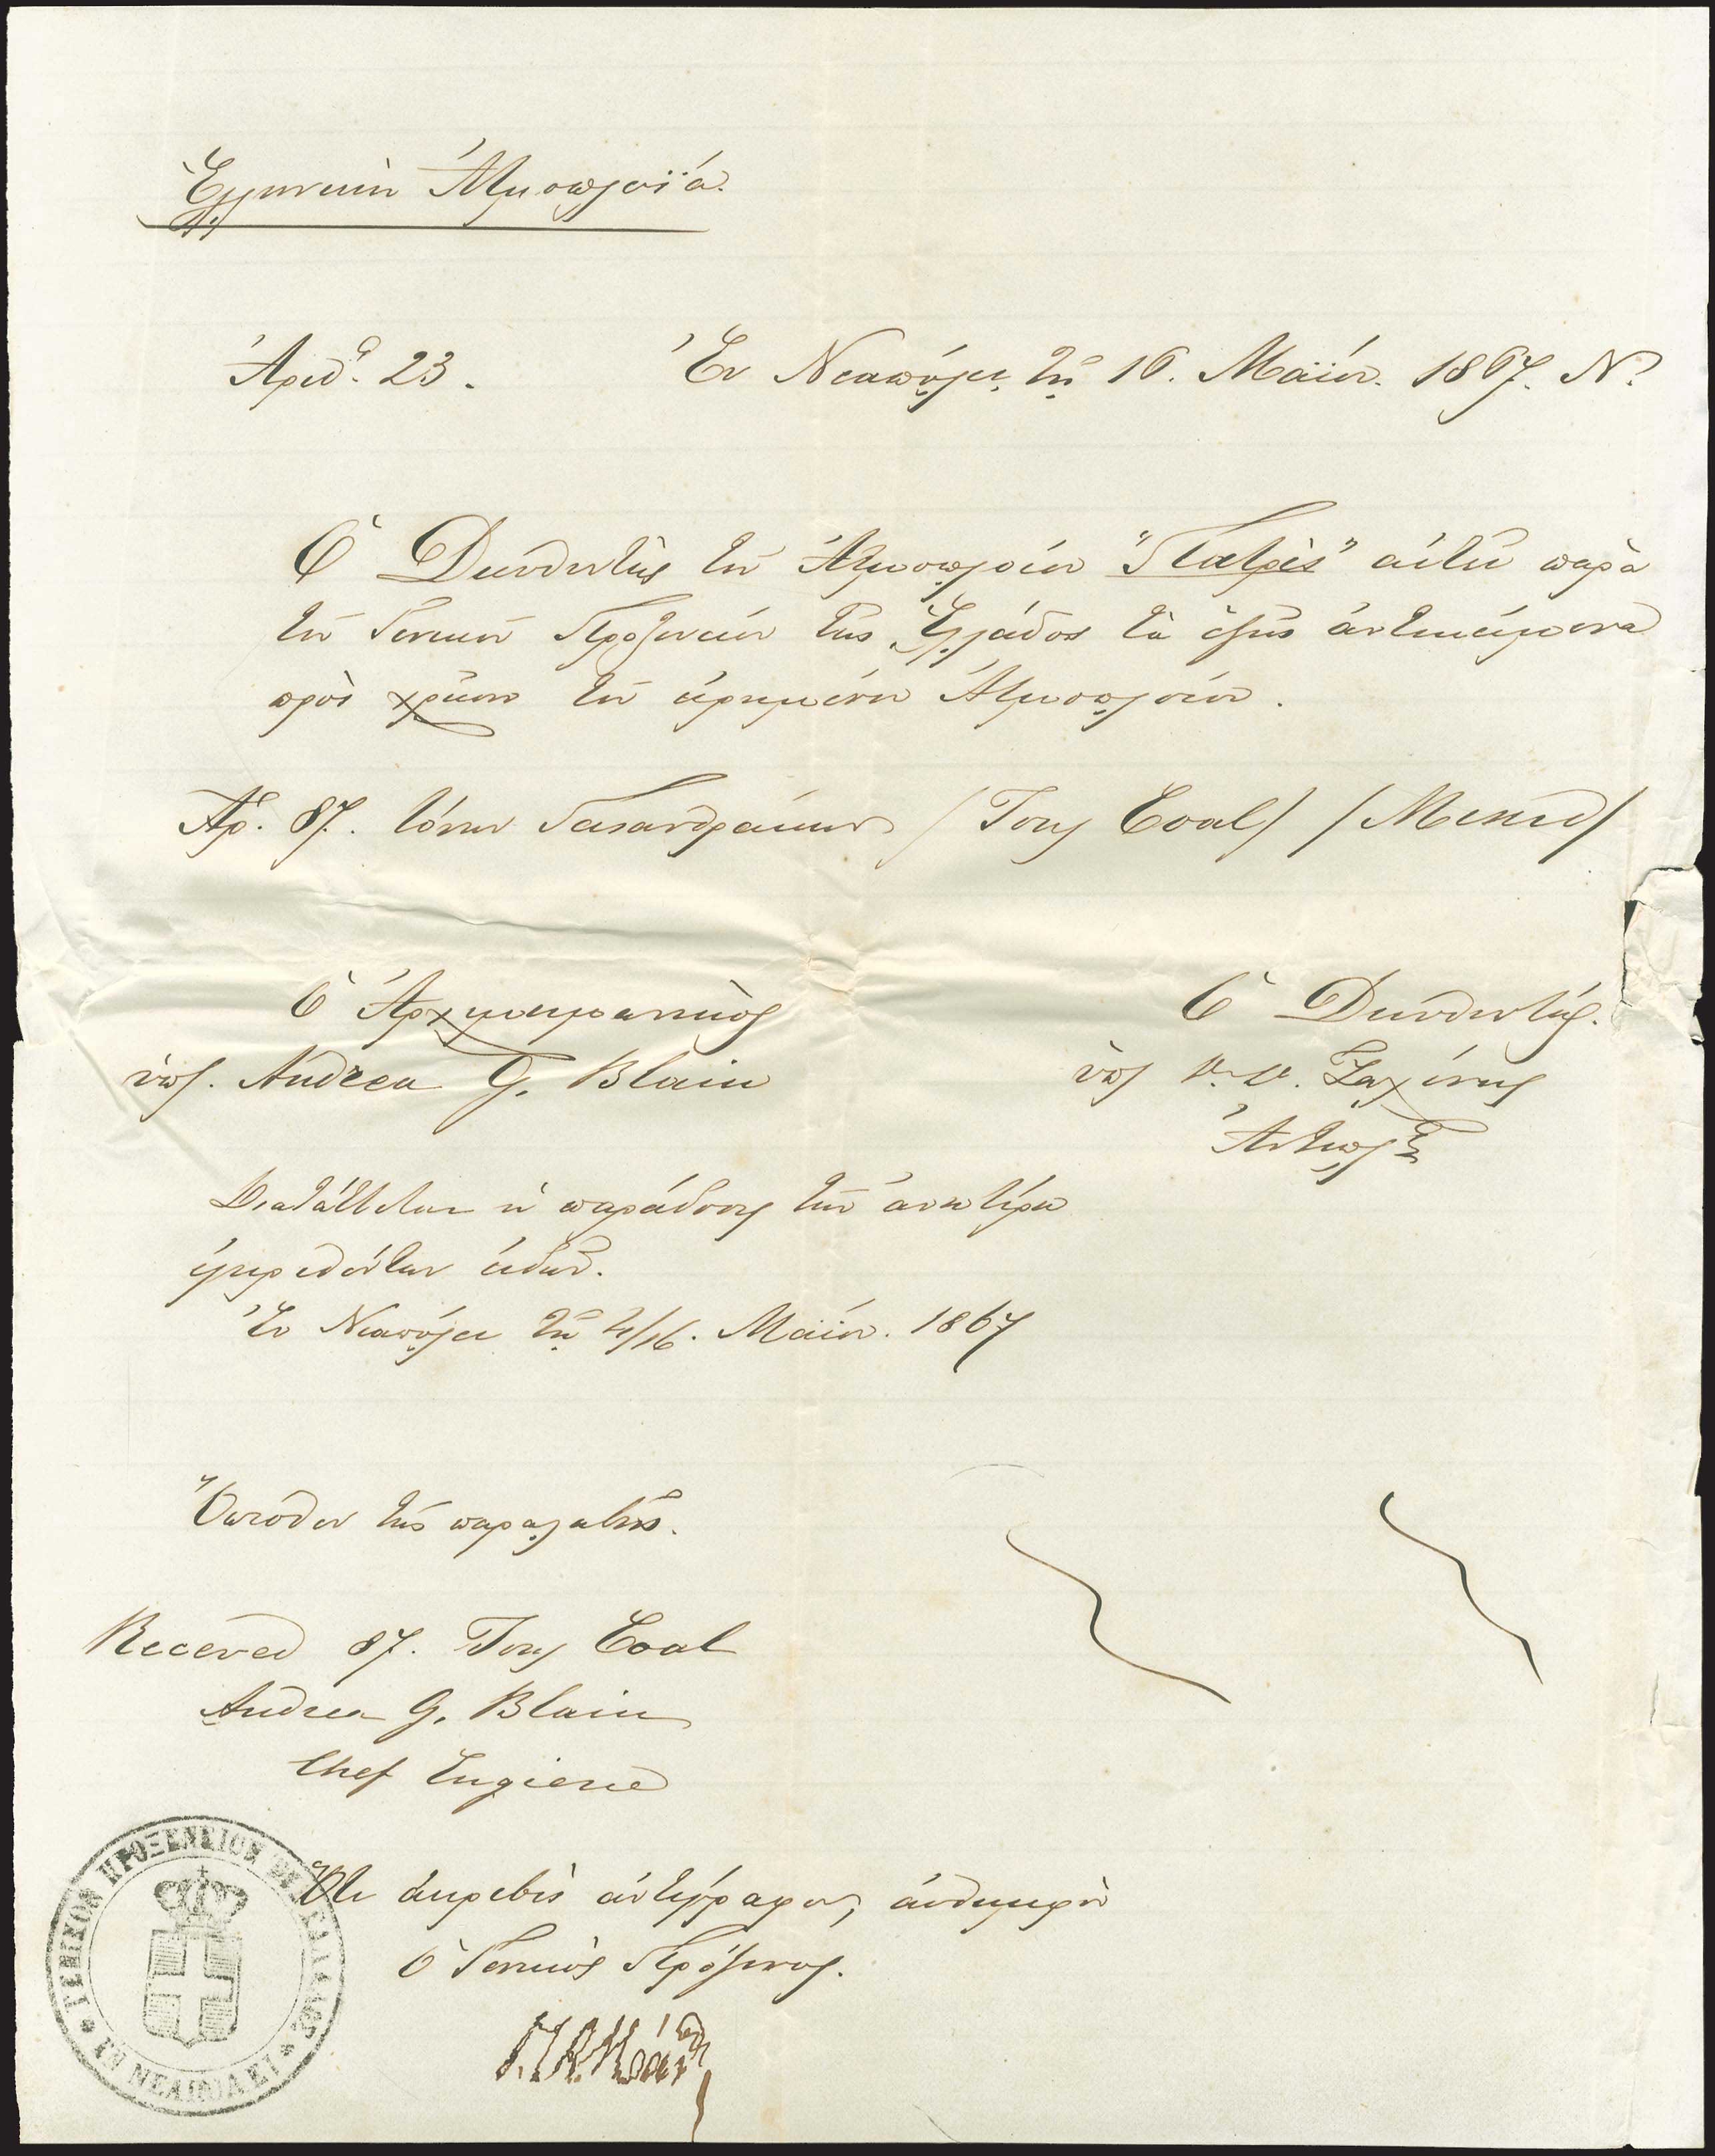 Ἑλληνικὴ Ἀτμοπλοΐα.
Ἀριθ. 23. Ἐν Νεαπόλει τῇ 16. Μαΐου. 1867. Ν.
Ὁ Διευθυντὴς τοῦ Ἀτμοπλοίου "Πατρὶς" αἰτεῖ παρὰ
τοῦ Γενικοῦ Προξενείου τῆς Ἑλλάδος τὰ ἑξῆς ἀντικείμενα
πρὸς χρῆσιν τοῦ εἰρημένου Ἀτμοπλοίου.
Ἀρ. 87. τόνων Γαιανθράκων / Tons Coal / /
Ὁ Ἀρχιμηχανικὸς Ὁ Διευθυντής.
ὑπ. Andrea G. Blain ὑπ
Διατάττεται ἡ παράδοσις τῶν ἀνωτέρω
ἐγκριθέντων εἰδῶν.
Ἐν Νεαπόλει τῇ 4/16. Μαΐου. 1867
Ὄπισθεν τῆς παραλαβῆς.
Receved 87. Tons Coal
Andrea G. Blain
Chef Engiene
Ὅτι ἀκριβὲς ἀντίγραφον, αὐθημερὸν
ὁ Γενικὸς Πρόξενος.
ΓΕΝΙΚΟΝ ΠΡΟΞΕΝΕΙΟΝ ΤΗΣ ΕΛΛΑΔΟΣ
* ΕΝ ΝΕΑΠΟΛΕΙ *